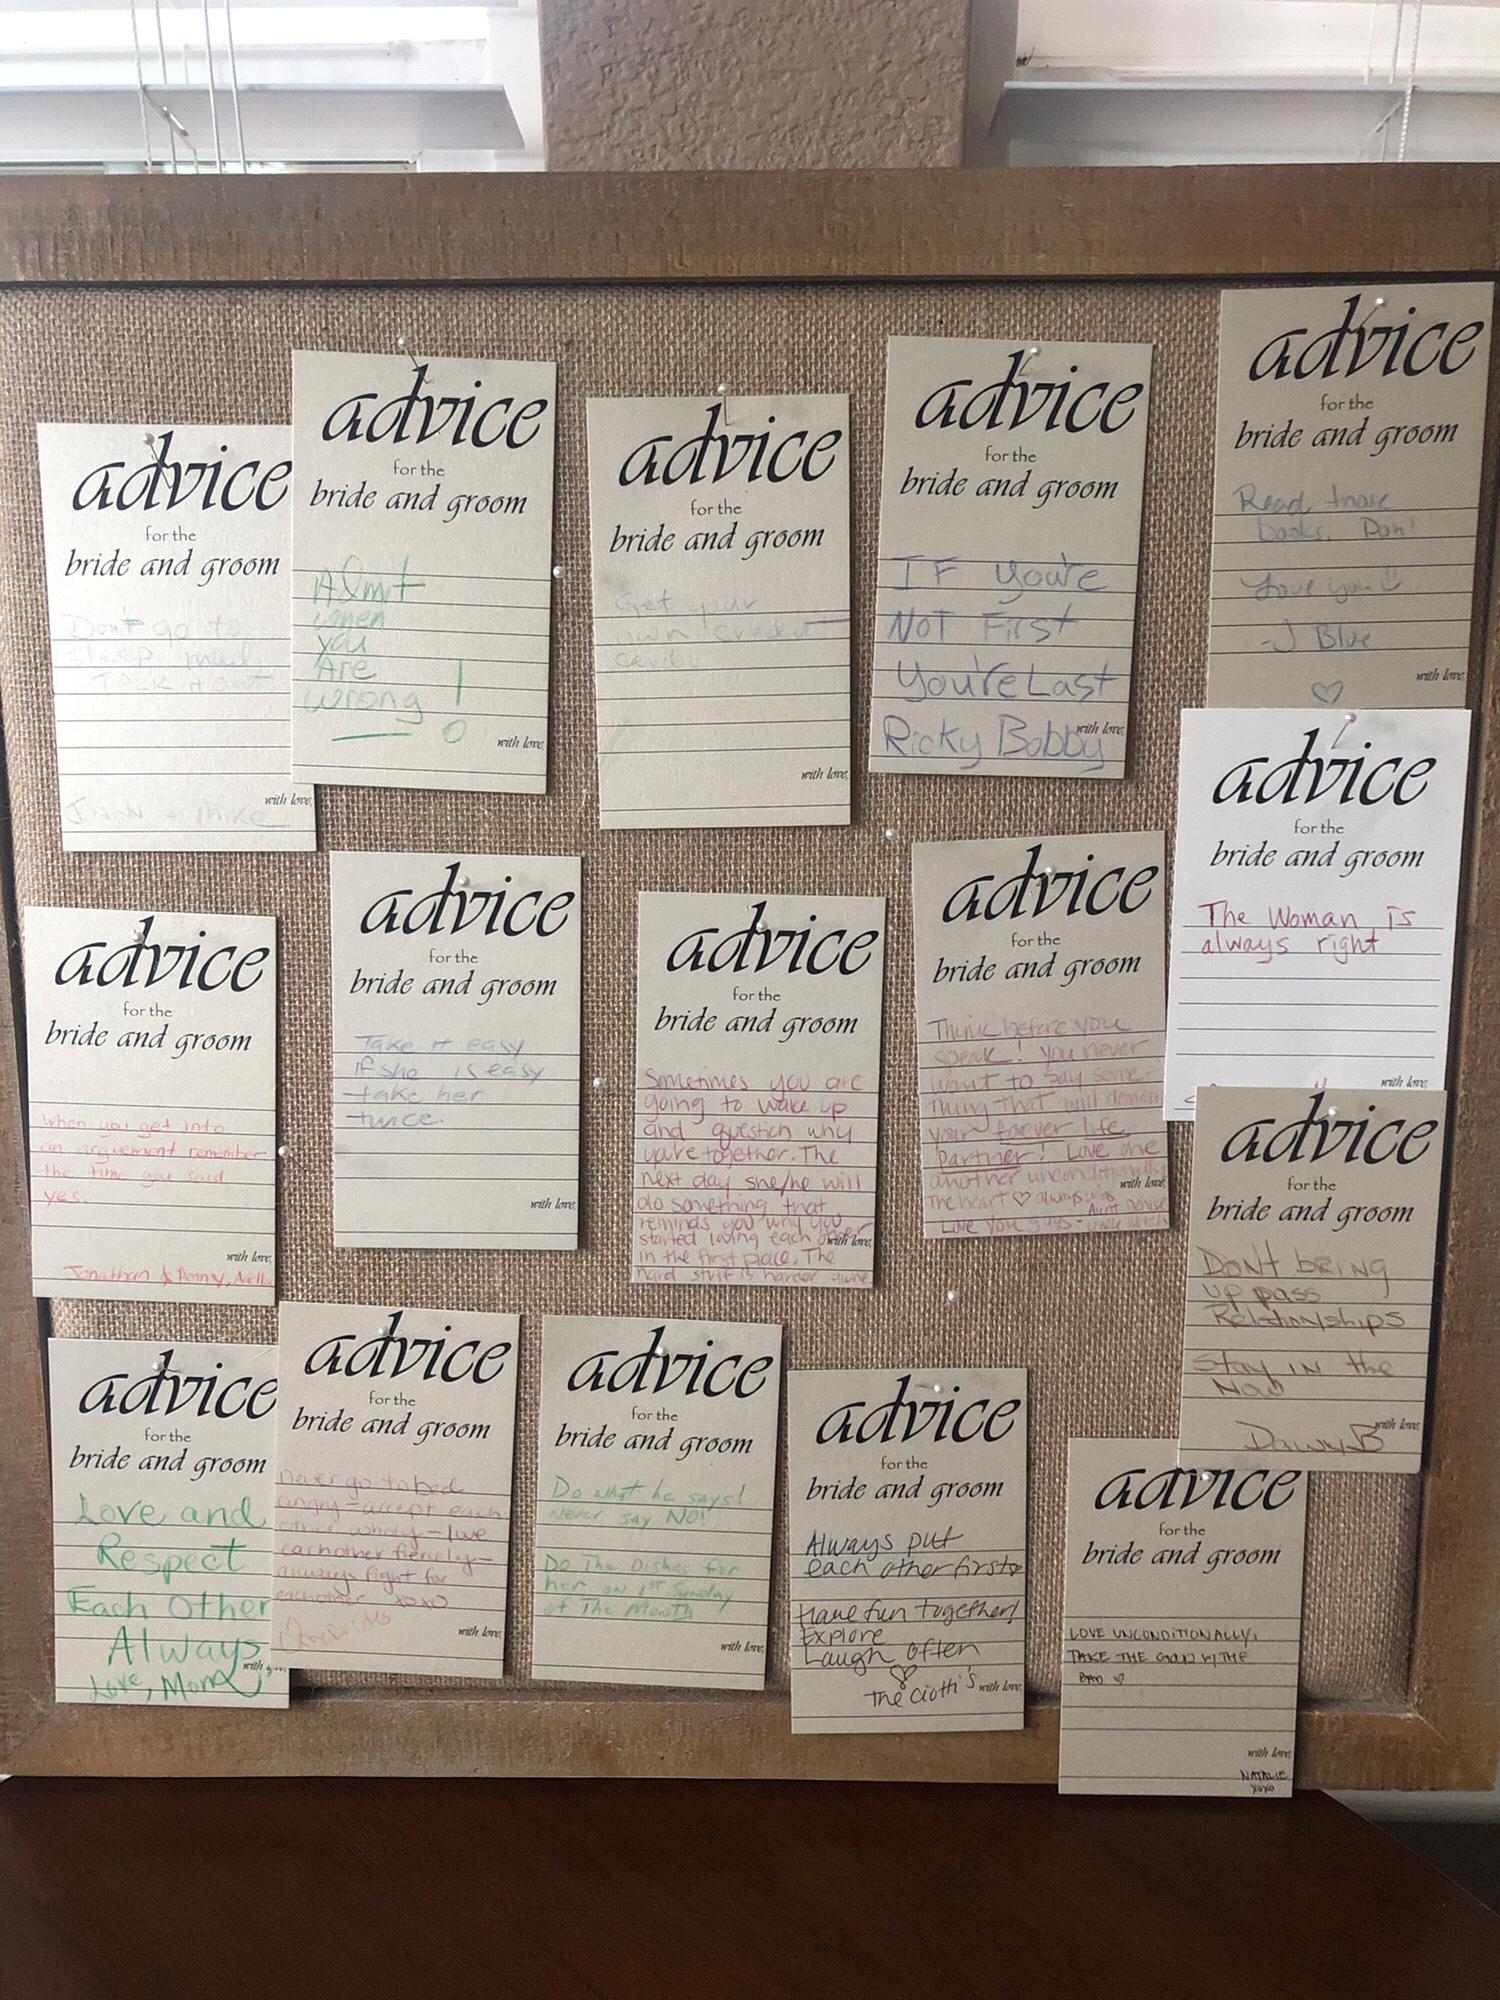 advice
for the
bride and groom
Don't go to
sleep mad,
Talk it out
with love,
advice
for the
bride and groom
Admit
when
you
Are
wrong !
with love,
advice
for the
bride and groom
Get your
own credit
cards
with love,
advice
for the
bride and groom
IF you're
NOT First
You're Last
with love,
Ricky Bobby
advice
for the
bride and groom
Read those
books, Dom!
Love you
-J Blue
with love,
advice
for the
bride and groom
The Woman is
always right
with love,
advice
for the
bride and groom
When you get into
an arguement remember
the time you said
yes.
with love,
Jonathan & Penny,
advice
for the
bride and groom
Take it easy
if she is easy
take her
twice.
with love,
advice
for the
bride and groom
Sometimes you are
going to wake up
and question why
you're together. The
next day she/he will
do something that
reminds you why you
started loving each other
with love,
in the first place. The
hard stuff is harder alone
advice
for the
bride and groom
Think before you
speak! You never
want to say some-
thing that will
your forever life
partner! Love one
another unconditionally
with love,
The heart always wins
Love you guys - Aunt Denise
advice
for the
bride and groom
DON't bring
up pass
Relationships
Stay IN the
Now
with love,
advice
for the
bride and groom
Love and
Respect
Each Other
Always
with
Love, Mom
advice
for the
bride and groom
never go to bed
angry - accept each
other wholy - love
eachother fiercely -
always fight for
eachother xoxo
with love,
advice
for the
bride and groom
Do what he says!
Never say NO!
Do The Dishes for
her on 1st Sunday
of The Month
with love,
advice
for the
bride and groom
Always put
each other first
Have fun together!
Explore
Laugh often
The Ciotti's
with love,
advice
for the
bride and groom
LOVE UNCONDITIONALLY,
TAKE THE GOOD W/THE
BAD
with love,
NATALIE
xoxo